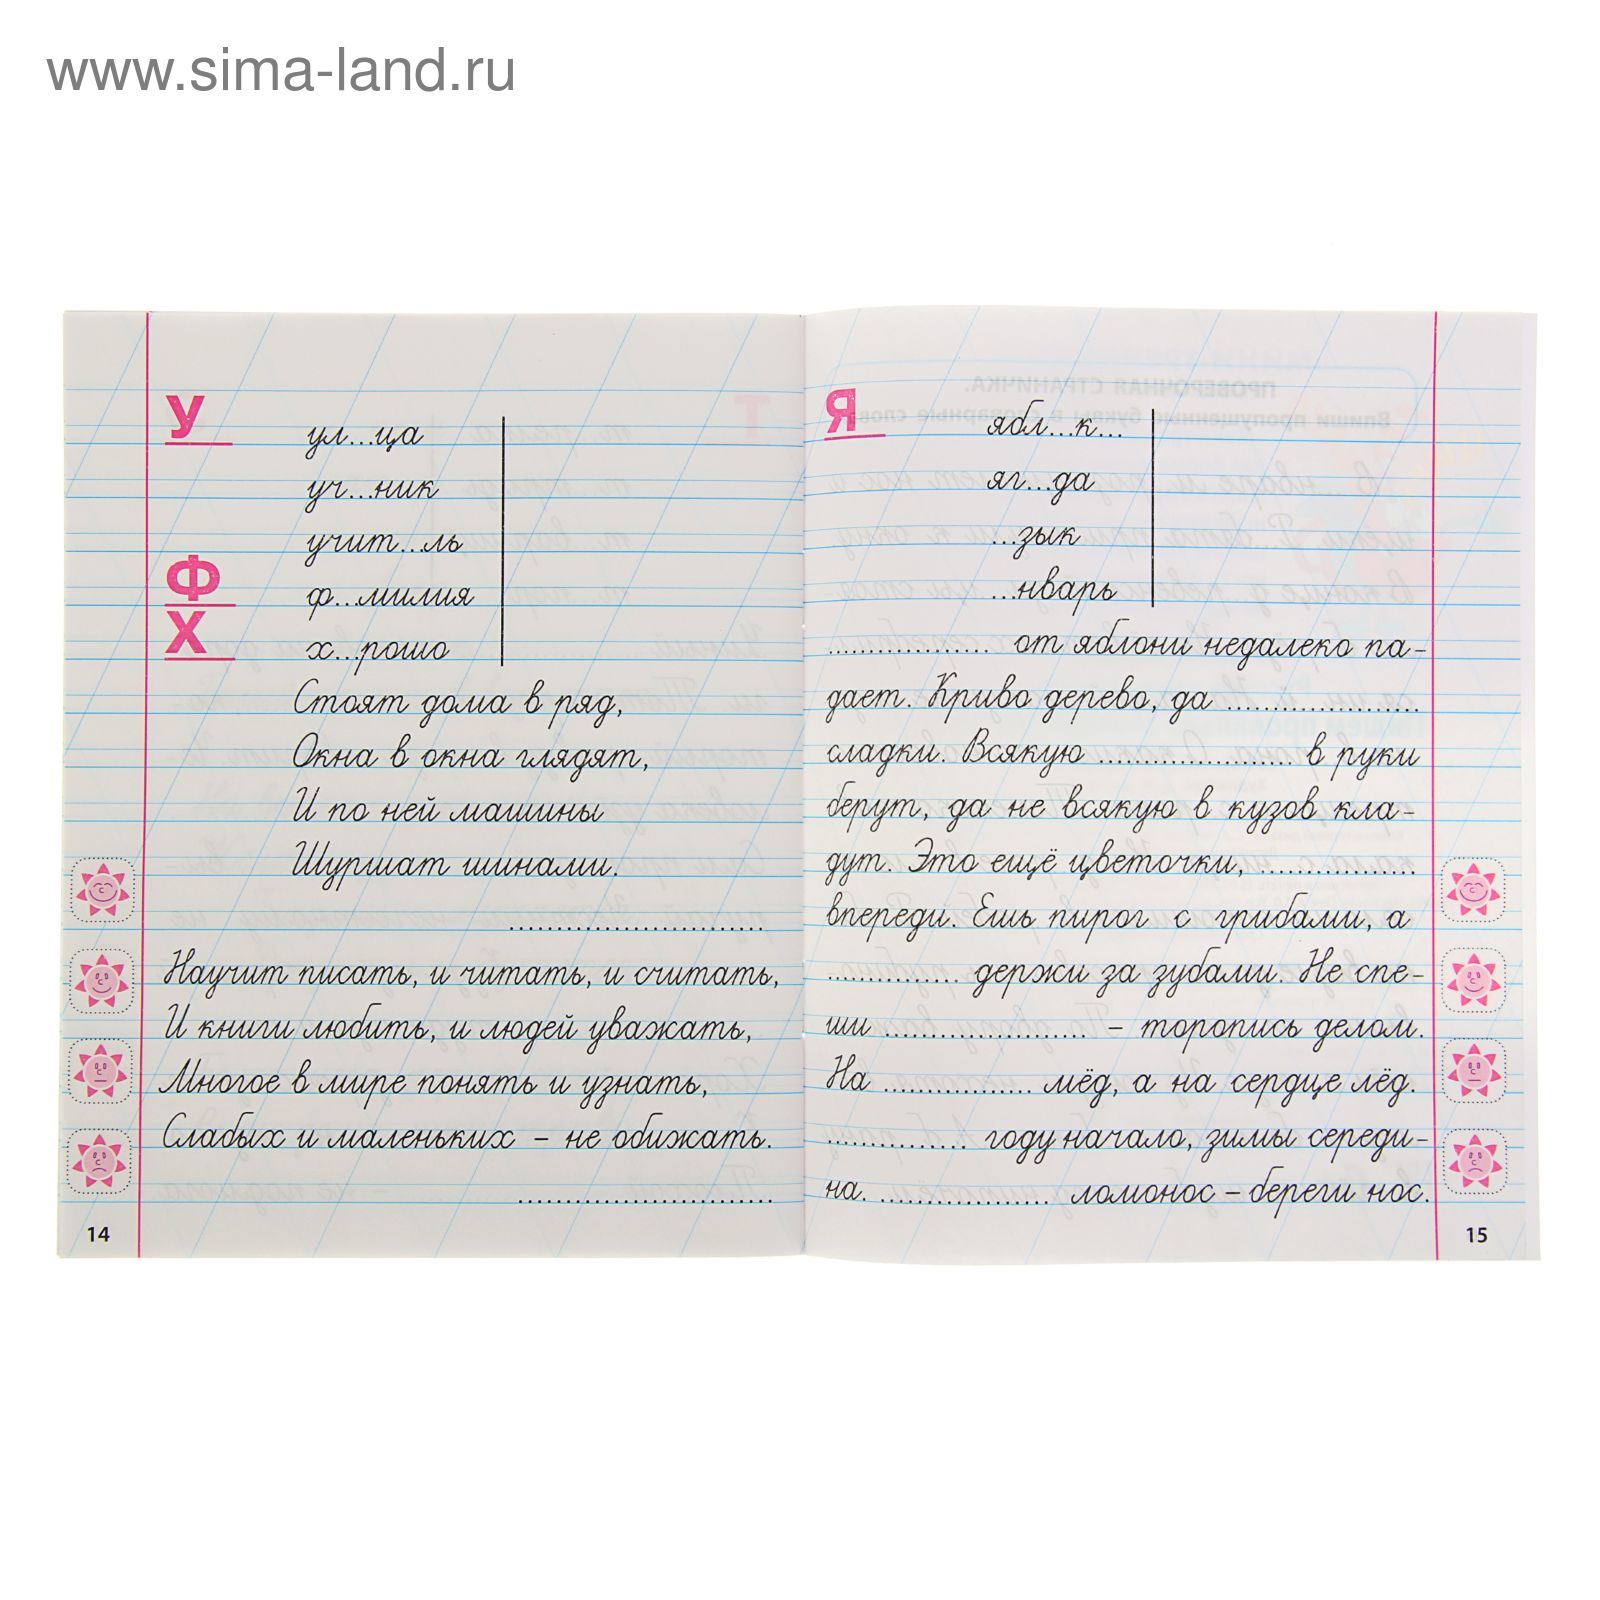 www.sima-land.ru
У
ул...ца
уч...ник
учит...ль
Ф
ф...милия
Х
х...рошо
Стоят дома в ряд,
Окна в окна глядят,
И по ней машины
Шуршат шинами.
..............................
Научит писать, и читать, и считать,
И книги любить, и людей уважать,
Многое в мире понять и узнать,
Слабых и маленьких – не обижать.
..............................
14
Я
ябл...к...
яг...да
...зык
...нварь
.................... от яблони недалеко па-
дает. Криво дерево, да ........................
сладки. Всякую ........................ в руки
берут, да не всякую в кузов кла-
дут. Это ещё цветочки, ...................
впереди. Ешь пирог с грибами, а
................ держи за зубами. Не спе-
ши ........................ – торопись делом.
На .................. мёд, а на сердце лёд.
................. году начало, зимы середи-
на. ..................... ломонос – береги нос.
15